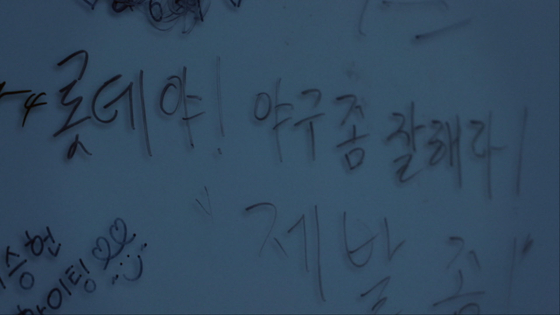 롯데야! 야구 좀 잘해라!
제발 좀!
승현
화이팅